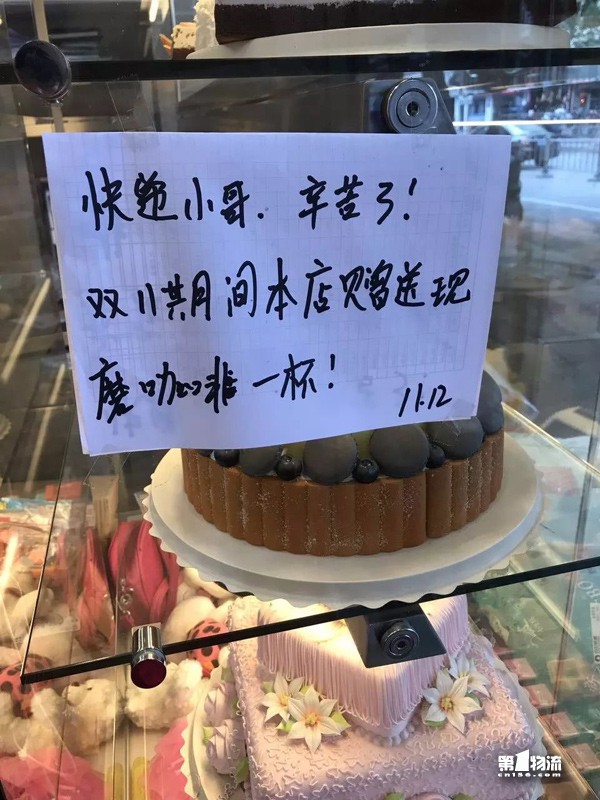 快递小哥. 辛苦了!
双11期间本店赠送现
磨咖啡一杯!
11.12
第1物流
cn156.com